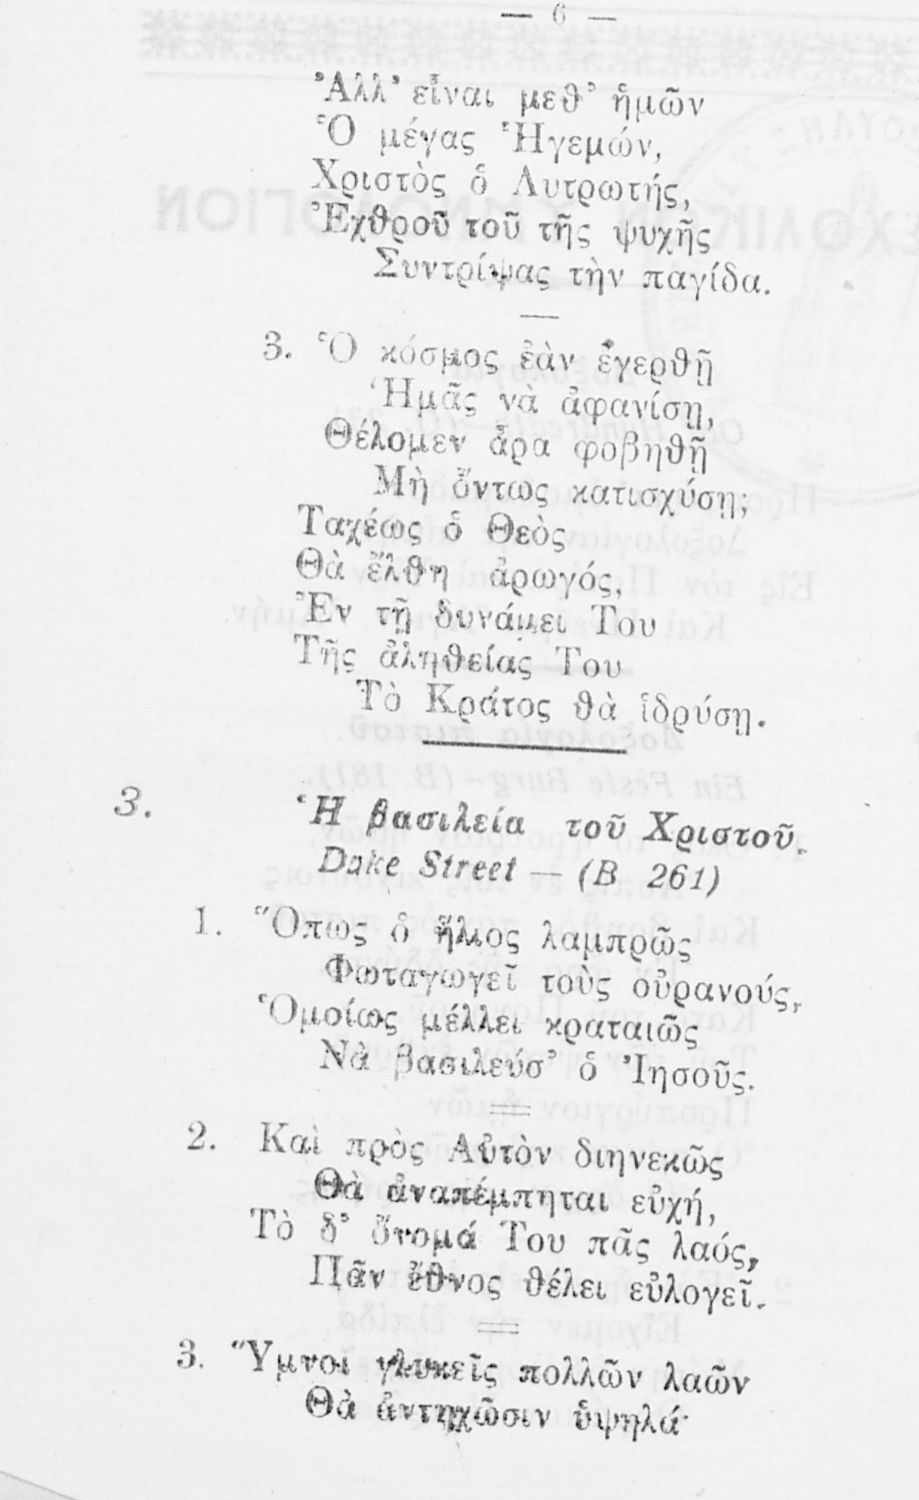 — 6 —
Ἀλλ' εἶναι μεθ' ἡμῶν
Ὁ μέγας Ἡγεμών,
Χριστὸς ὁ Λυτρωτής,
Ἐχθροῦ τοῦ τῆς ψυχῆς
Συντρίψας τὴν παγίδα.
3. Ὁ κόσμος ἐὰν ἐγερθῇ
Ἡμᾶς νὰ ἀφανίσῃ,
Θέλομεν ἆρα φοβηθῇ
Μὴ ὄντως κατισχύσῃ;
Ταχέως ὁ Θεὸς
Θὰ ἔλθη ἀρωγός,
Ἐν τῇ δυνάμει Του
Τῆς ἀληθείας Του
Τὸ Κράτος θὰ ἱδρύσῃ.
3. Ἡ βασιλεία τοῦ Χριστοῦ.
Duke Street — (B 261)
1. Ὅπως ὁ ἥλιος λαμπρῶς
Φωταγωγεῖ τοὺς οὐρανούς,
Ὁμοίως μέλλει κραταιῶς
Νὰ βασιλεύσ' ὁ Ἰησοῦς.
2. Καὶ πρὸς Αὐτὸν διηνεκῶς
Θὰ ἀναπέμπηται εὐχή,
Τὸ δ' ὄνομά Του πᾶς λαός,
Πᾶν ἔθνος θέλει εὐλογεῖ.
3. Ὕμνοι γλυκεῖς πολλῶν λαῶν
Θὰ ἀντηχῶσιν ὑψηλά·